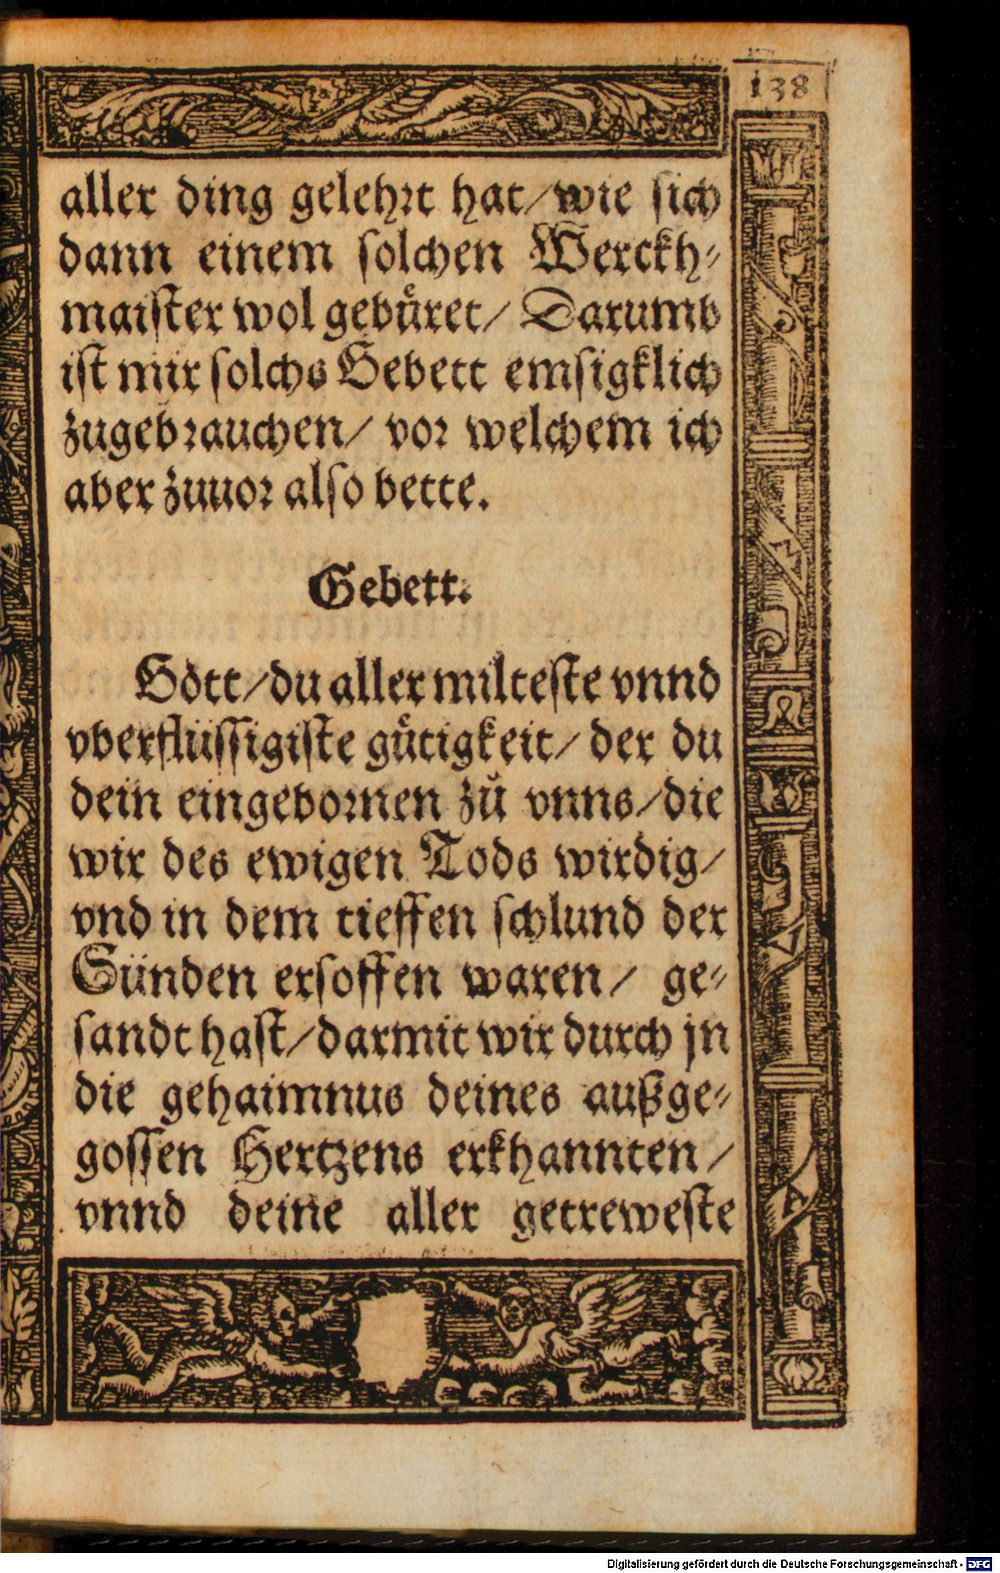 138
aller ding gelehrt hat/wie sich
dann einem solchen Werckh-
maister wol gebüret/ Darumb
ist mir solchs Gebett emsigklich
zugebrauchen/ vor welchem ich
aber zuuor also bette.
Gebett.
Gott/du aller milteste vnnd
vberflüssigiste gütigkeit/ der du
dein eingebornen zů vnns/die
wir des ewigen Tods wirdig/
vnd in dem tieffen schlund der
Sünden ersoffen waren/ ge-
sandt hast/darmit wir durch jn
die gehaimnus deines außge-
gossen Hertzens erkhannten/
vnnd deine aller getreweste
Digitalisierung gefördert durch die Deutsche Forschungsgemeinschaft - DFG